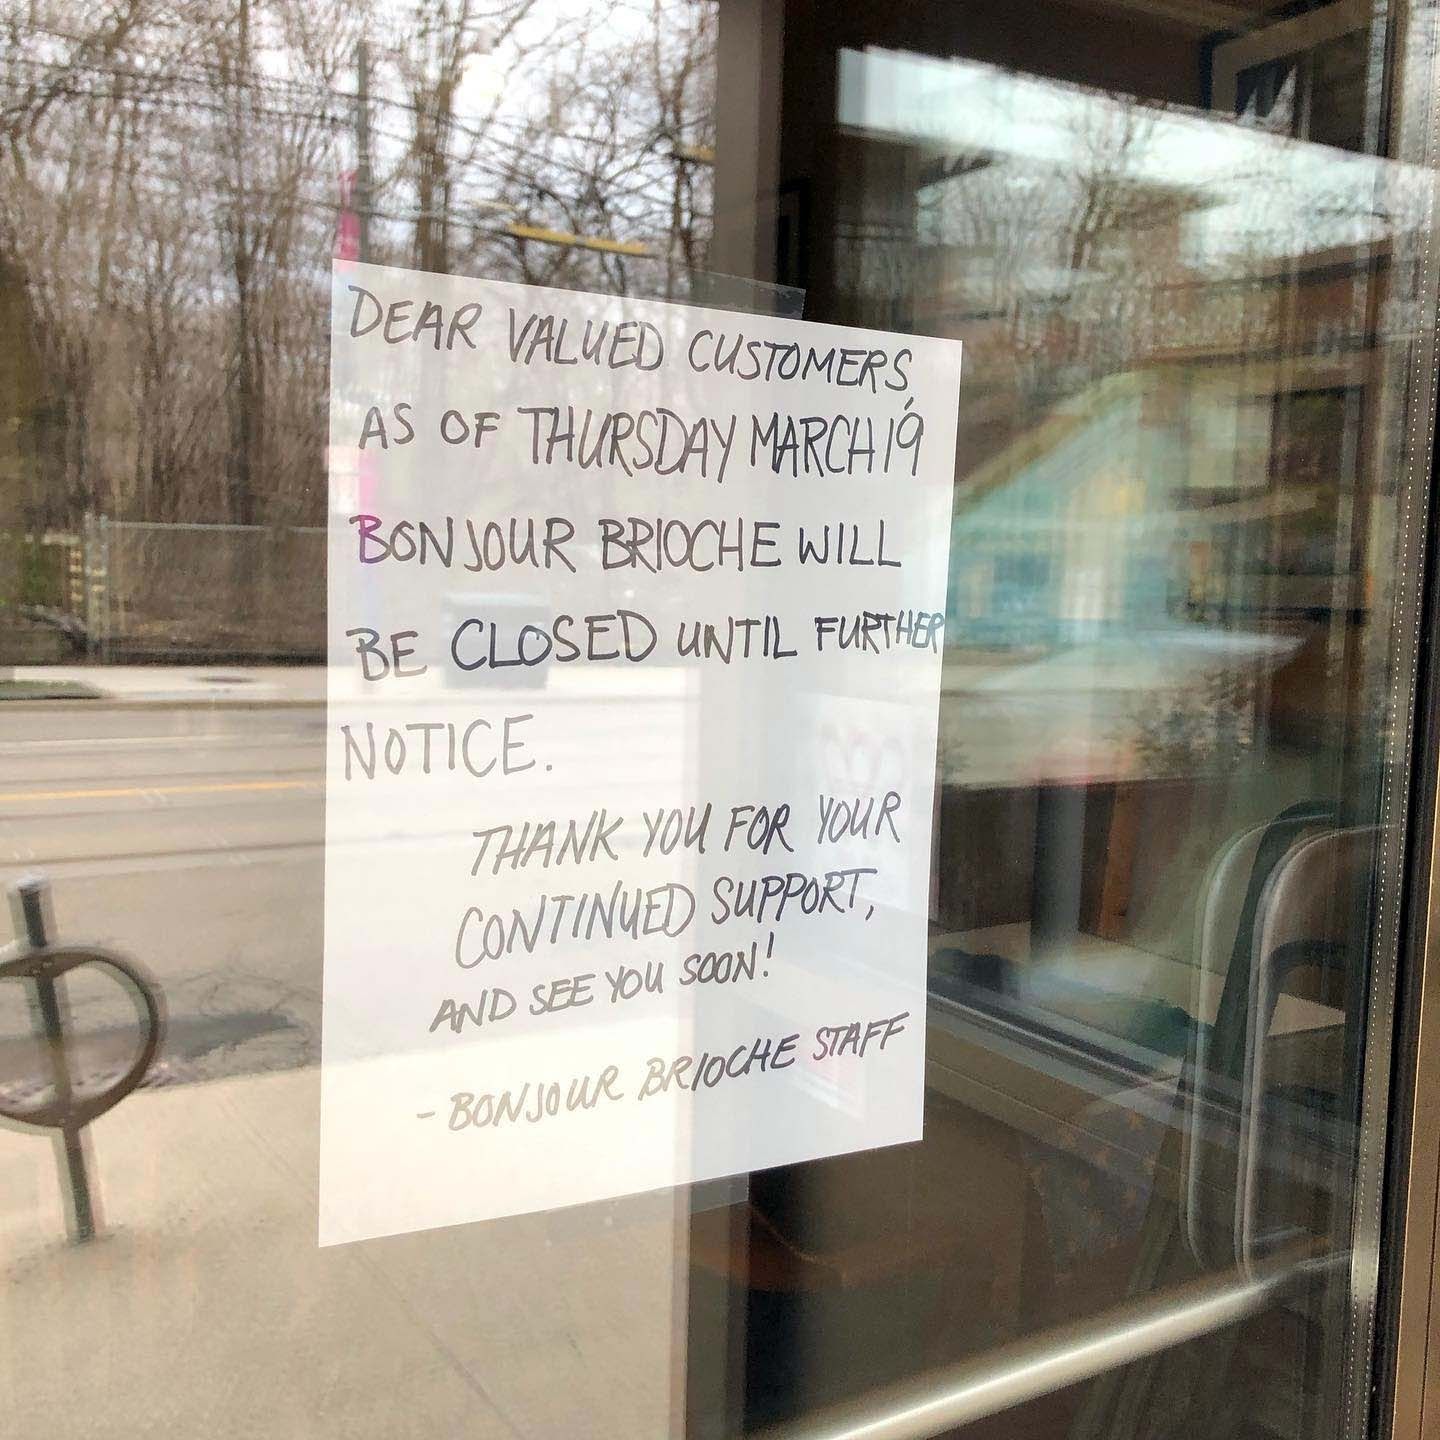 DEAR VALUED CUSTOMERS,
AS OF THURSDAY MARCH 19
BONJOUR BRIOCHE WILL
BE CLOSED UNTIL FURTHER
NOTICE.
THANK YOU FOR YOUR
CONTINUED SUPPORT,
AND SEE YOU SOON!
- BONJOUR BRIOCHE STAFF